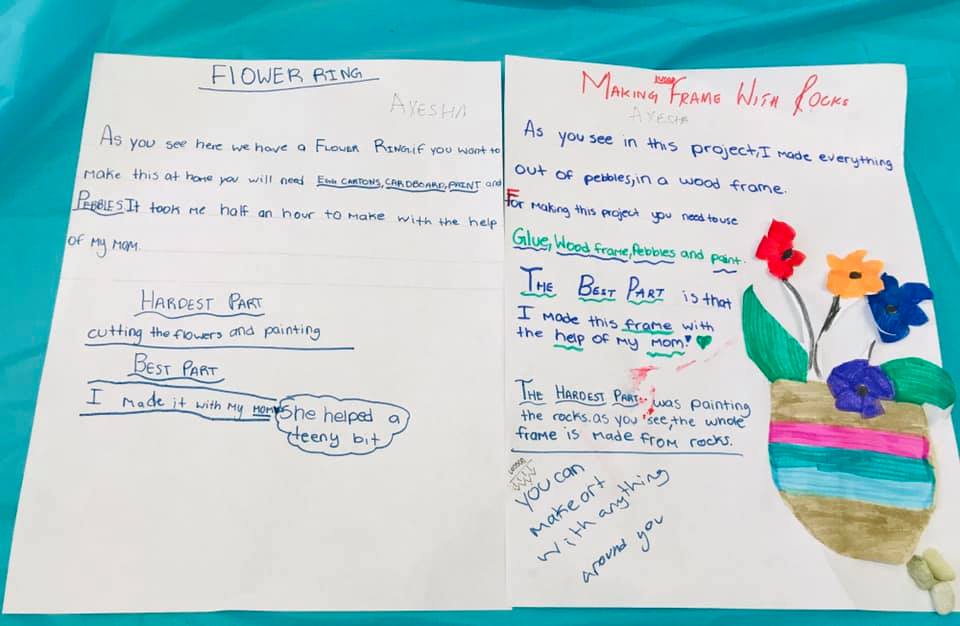 FLOWER RING
AYESHA
As you see here we have a FLOWER RING.if you want to
make this at home you will need EGG CARTONS, CARDBOARD, PAINT and
PEBBLES.It took me half an hour to make with the help
of my mom.
HARDEST PART
cutting the flowers and painting
BEST PART
I made it with my mom
She helped a
teeny bit
MAKING FRAME WITH ROCKS
AYESHA
As you see in this project, I made everything
out of pebbles, in a wood frame.
For making this project you need to use
Glue, Wood frame, Pebbles and paint.
THE BEST PART is that
I made this frame with
the help of my mom!
THE HARDEST PART: was painting
the rocks. as you see, the whole
frame is made from rocks.
you can
make art
with anything
around you